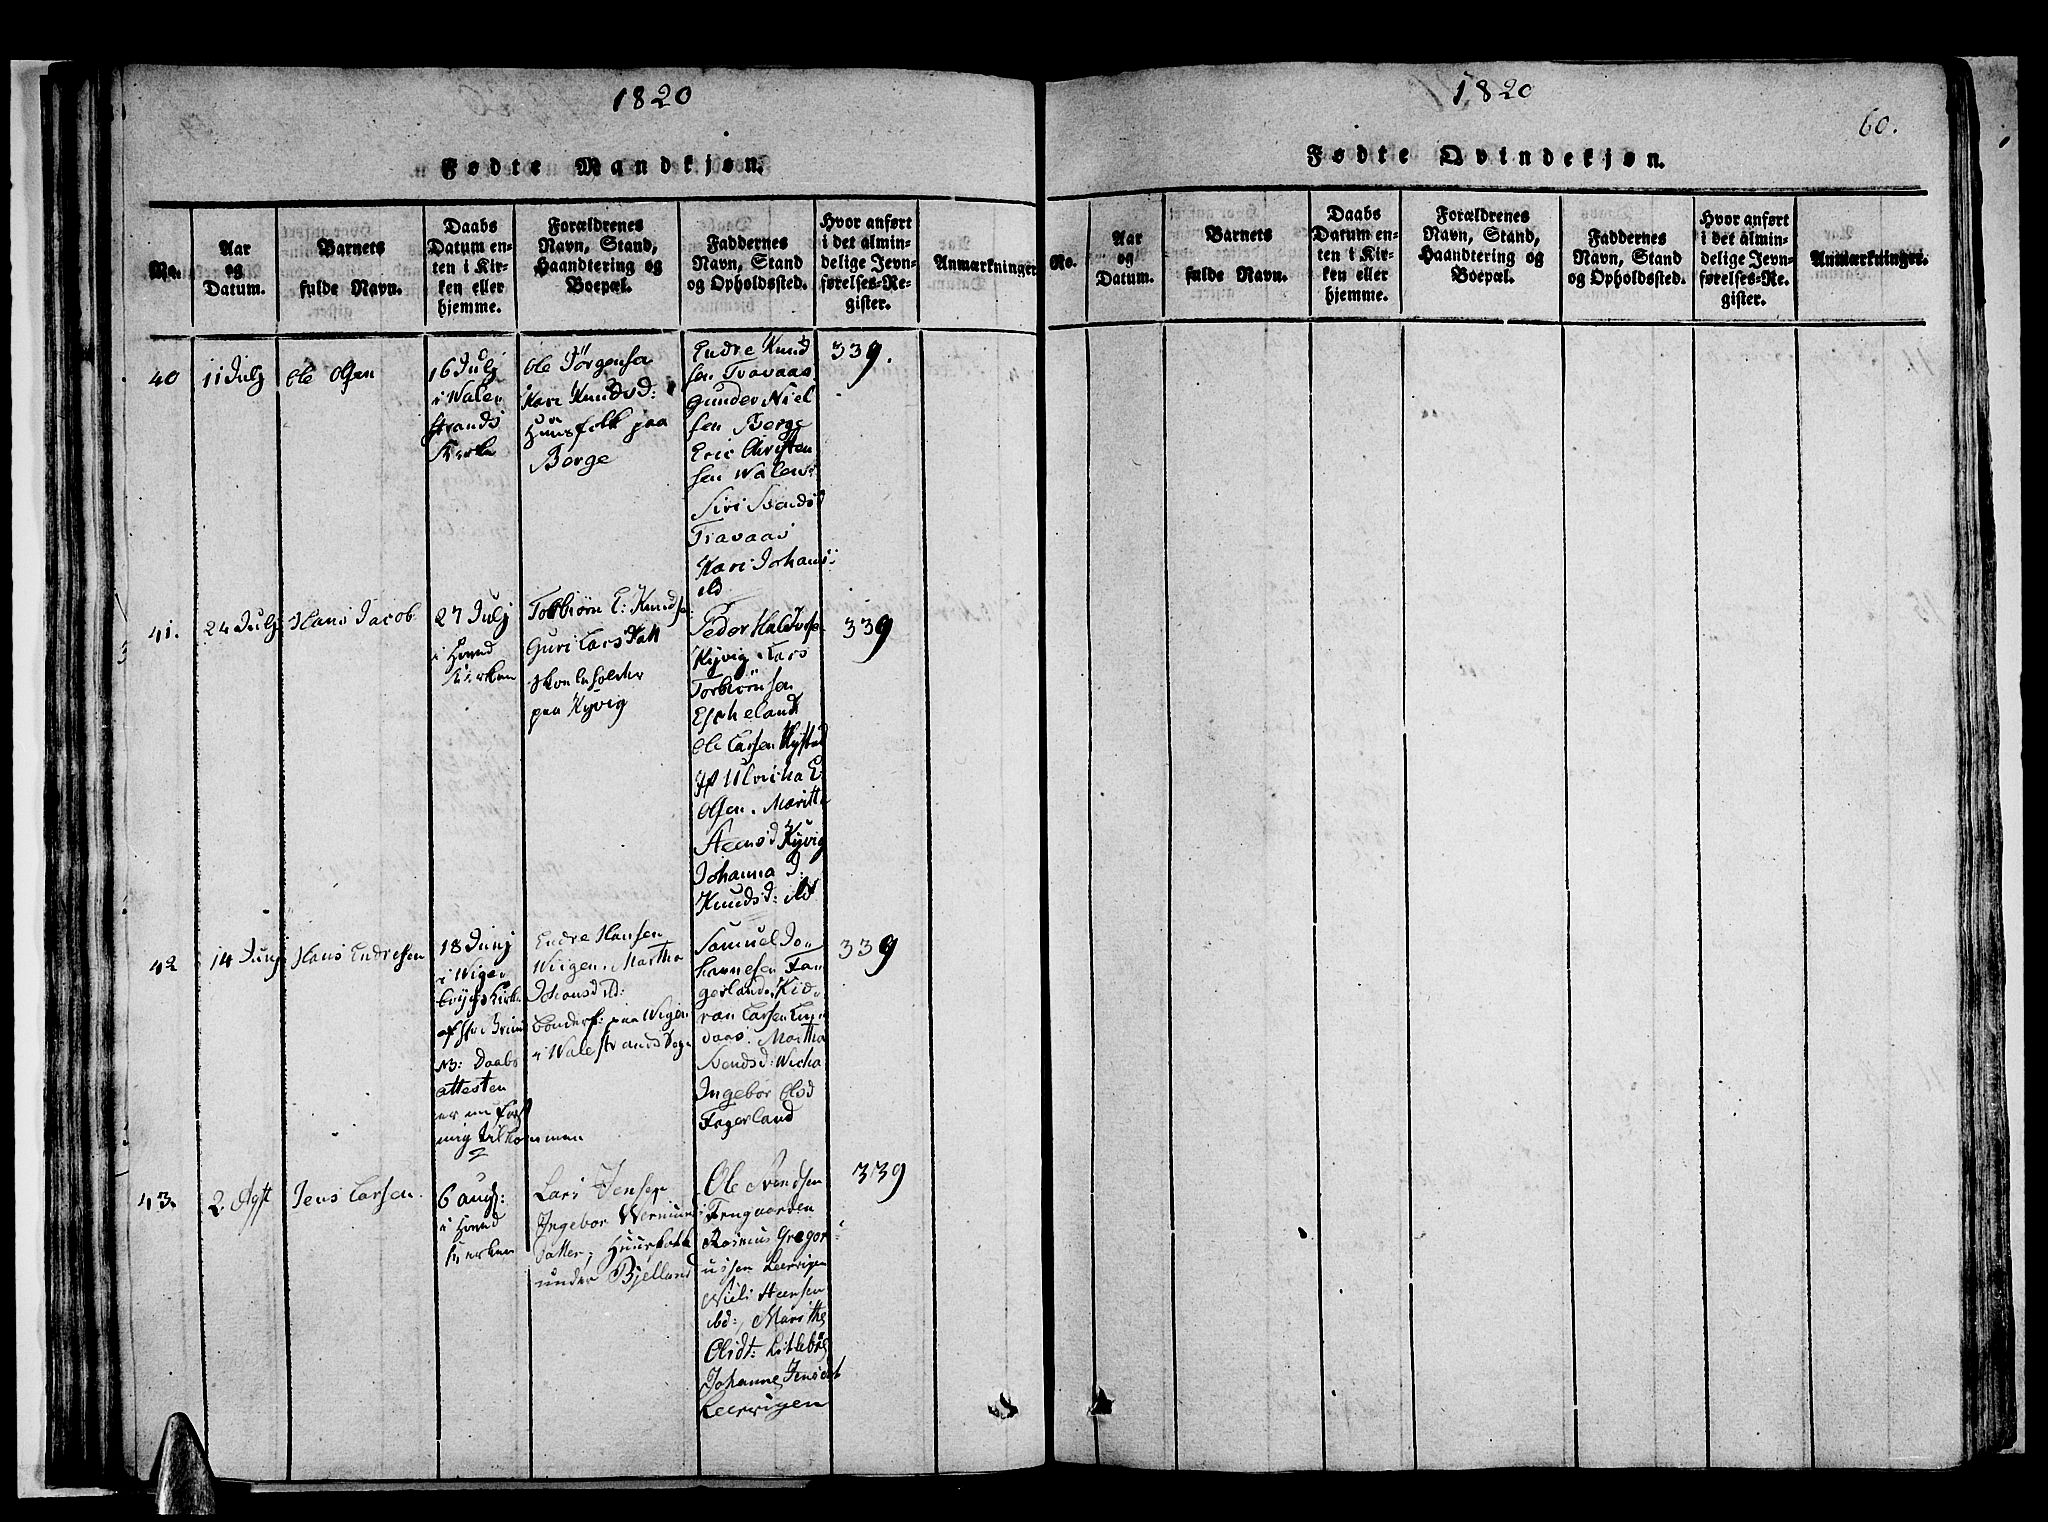 1820
Fødte Mandkjøn.
No.
Aar
og
Datum.
Barnets
fulde Navn.
Daabs
Datum en-
ten i Kir-
ken eller
hjemme.
Forældrenes
Navn, Stand,
Haandtering og
Boepæl.
Faddernes
Navn, Stand
og Opholdssted.
Hvor anført
i det almin-
delige Jevn-
førelses-Re-
gister.
Anmærkninger.
40
11 Julj
Ole Olsen
16 Julj
i Wale
strands
Kirke
Ole Jörgensen
Kari Knudsd:
Huusfolk paa
Borge
Endre Knud
sen Travaas
Gunder Niel
sen Borge
Eric Christen
sen Walen
Siri Svendsd
Travaas
Kari Johans
ibd
339.
41.
24 Julj
Hans Jacob
27 Julj
i
Kirken
Torbiörn E: Knudsen
Guri Larsdatt
Skoleholder
paa Kyvig
Peder Haldorsen
Kyvig Lars
Torbiörnsen
Escheland
Ole Larsen
Ulricha E
Olsen. Maritta
Kyvig
Johanna J:
Knudsd: ibd
339
42
14 Junj
Hans Endresen
18 Junj
i
af Hr:
NB: Daabs
attesten
er nu först
mig tilkommen
Endre Hansen
Wiigen. Martha
Johansd ibd:
bonderf: paa Wigen
i Walestrands Sogn
Samuel Jo-
hannesen Fa
gerland.
ran Larsen
Martha
Svendsd:
Ingebor Olsd
Fagerland
339
43.
2 Agst
Jens Larsen.
6 aug:
i
Kirken
Lars Jensen
Ingebor
datter, Huusfolk
under Bjelland
Ole Svendsen
Rasmus Gregor
iussen Leervigen
ibd:, Marithe
Olsdt: Litlebö
Johanne Jensdat
Leervigen
339
1820
60.
Fødte Qvindekjøn.
No.
Aar
og
Datum.
Barnets
fulde Navn.
Daabs
Datum en-
ten i Kir-
ken eller
hjemme.
Forældrenes
Navn, Stand,
Haandtering og
Boepæl.
Faddernes
Navn, Stand
og Opholdssted.
Hvor anført
i det almin-
delige Jevn-
førelses-Re-
gister.
Anmærkninger.